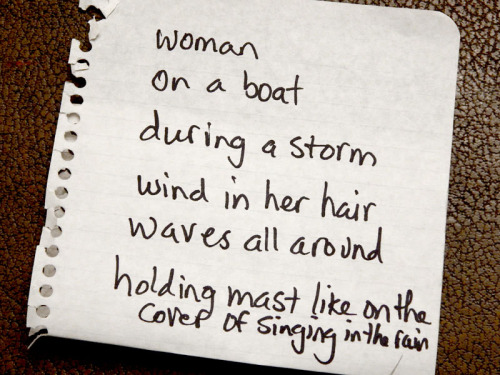 woman
on a boat
during a storm
wind in her hair
waves all around
holding mast like on the
cover of singing in the rain